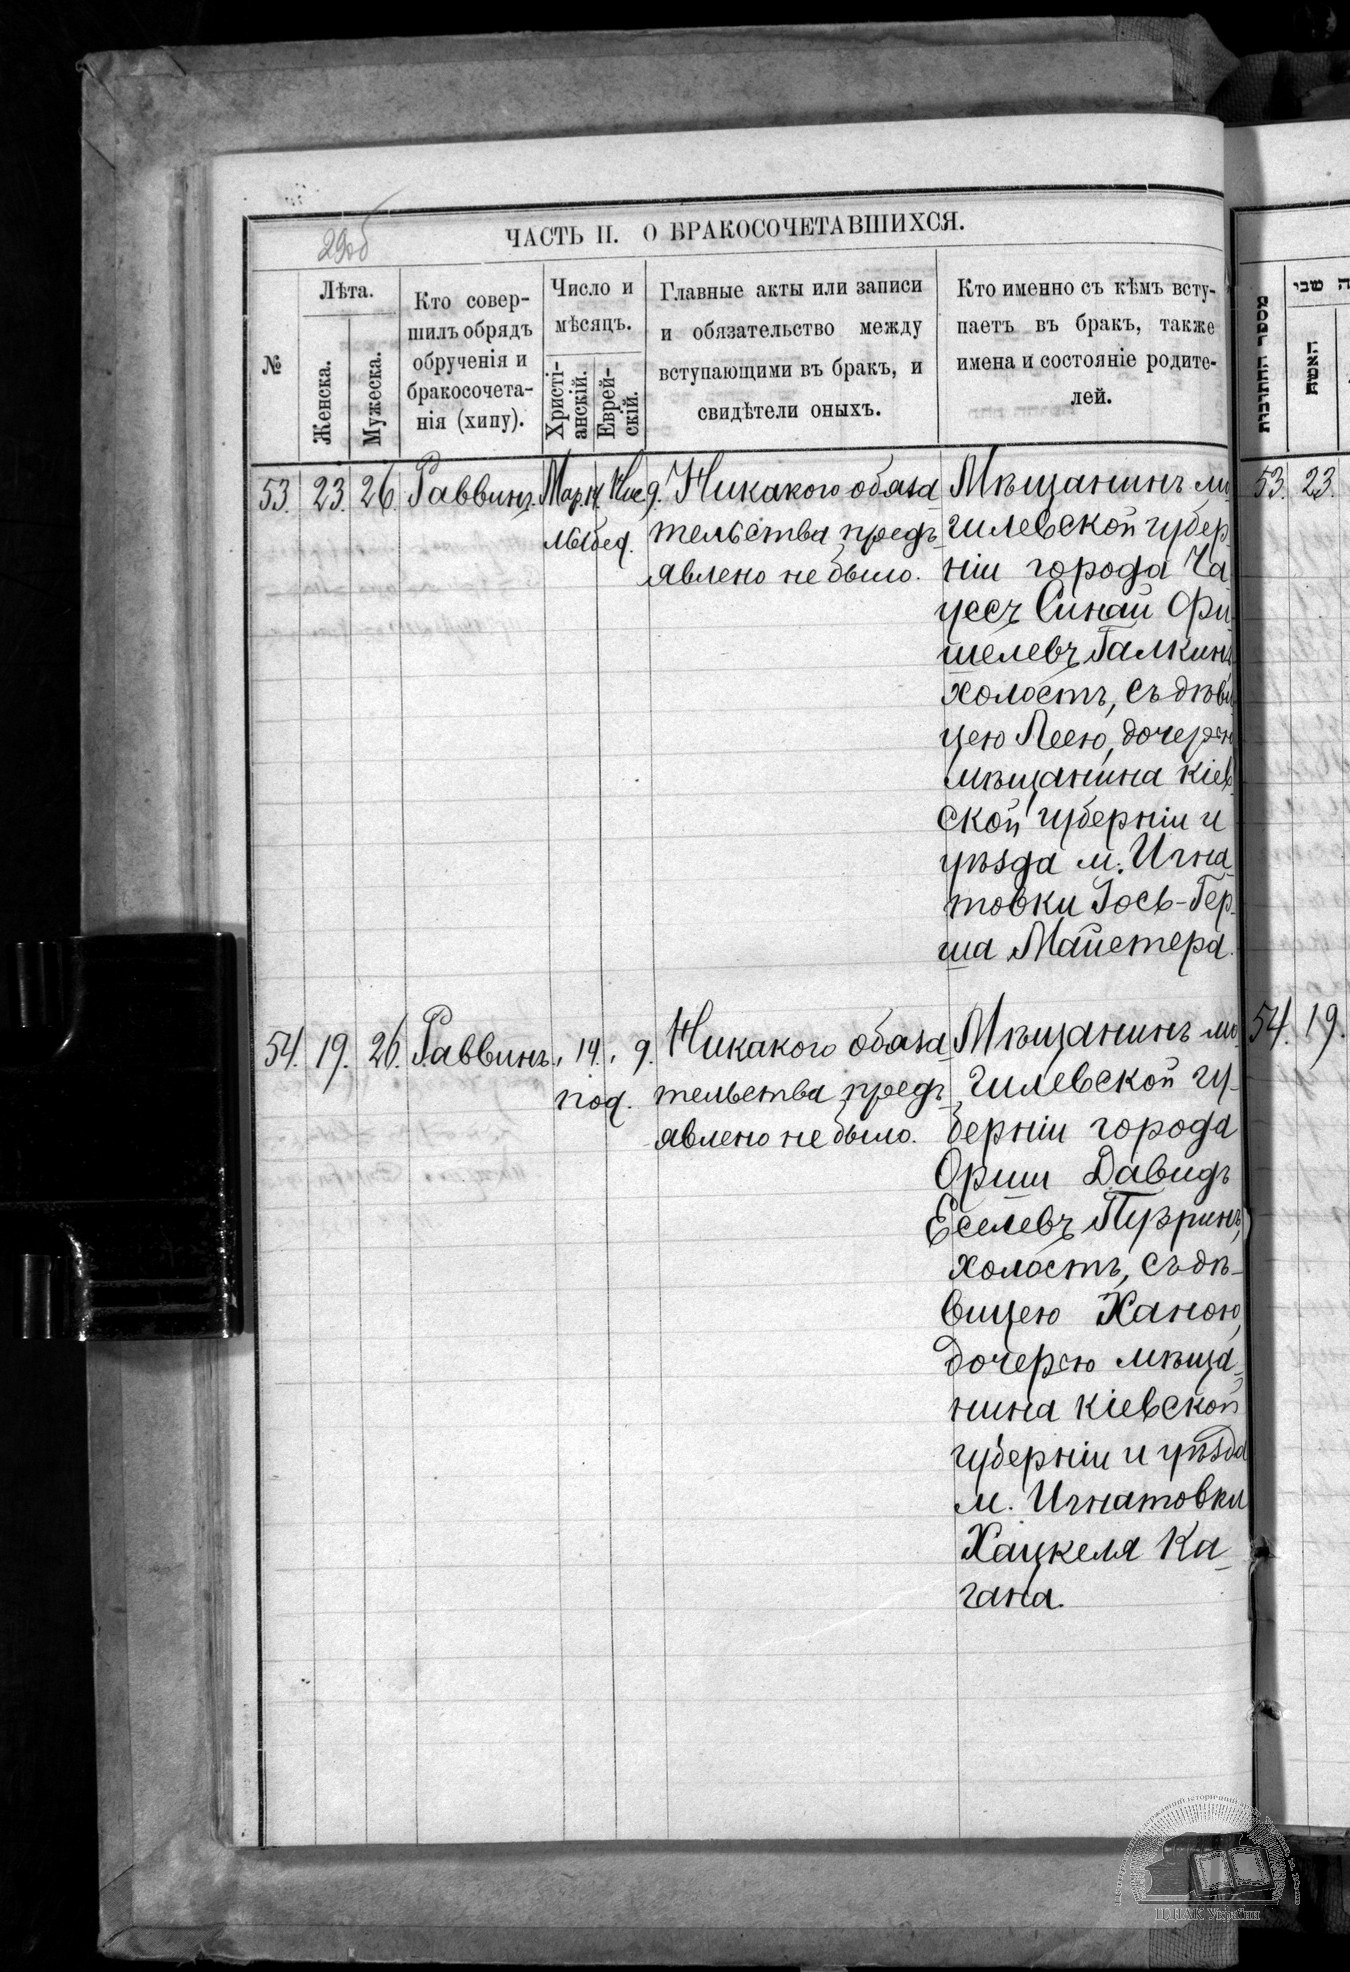 29об
ЧАСТЬ II. О БРАКОСОЧЕТАВШИХСЯ.
№
Лѣта.
Женска.
Мужеска.
Кто совер-
шилъ обрядъ
обрученія и
бракосочета-
нія (хипу).
Число и
мѣсяцъ.
Христі-
анскій.
Еврей-
скій.
Главные акты или записи
и обязательство между
вступающими въ бракъ, и
свидѣтели оныхъ.
Кто именно съ кѣмъ всту-
паетъ въ бракъ, также
имена и состояніе родите-
лей.
53. 23. 26. Раввинъ.
Никакого обяза-
тельства предъ-
явлено не было.
Мѣщанинъ мо-
гилевской губер-
ніи города Ча-
усъ Синай Фи-
шелевъ Галкинъ,
холостъ, съ дѣви-
цею Леею, дочерею
мѣщанина кіев-
ской губерніи и
уѣзда м. Игна-
товки Іось-Гер-
ша Майстера.
54. 19. 26. Раввинъ. " 14. " 9.
Никакого обяза-
тельства предъ-
явлено не было.
Мѣщанинъ мо-
гилевской гу-
берніи города
Орши Давидъ
Еселевъ
холостъ, съ дѣ-
вицею Ханою,
дочерею мѣща-
нина кіевской
губерніи и уѣзда
м. Игнатовки
Хацкеля Ка-
гана.
מספר החתונות
האשה
ה שני
53. 23.
54. 19.
ЦДІАК України